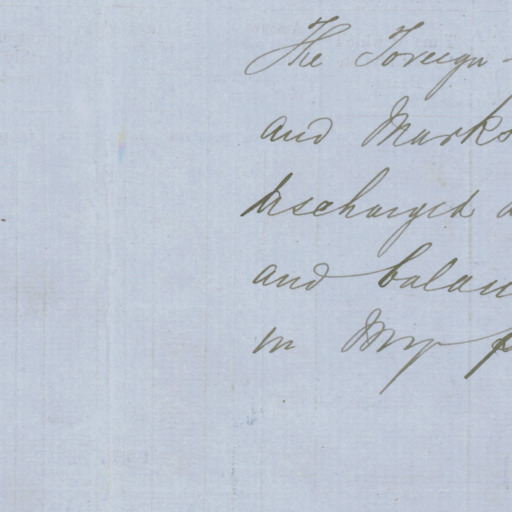 The Foreign
and Marks
discharged
and balan
in My